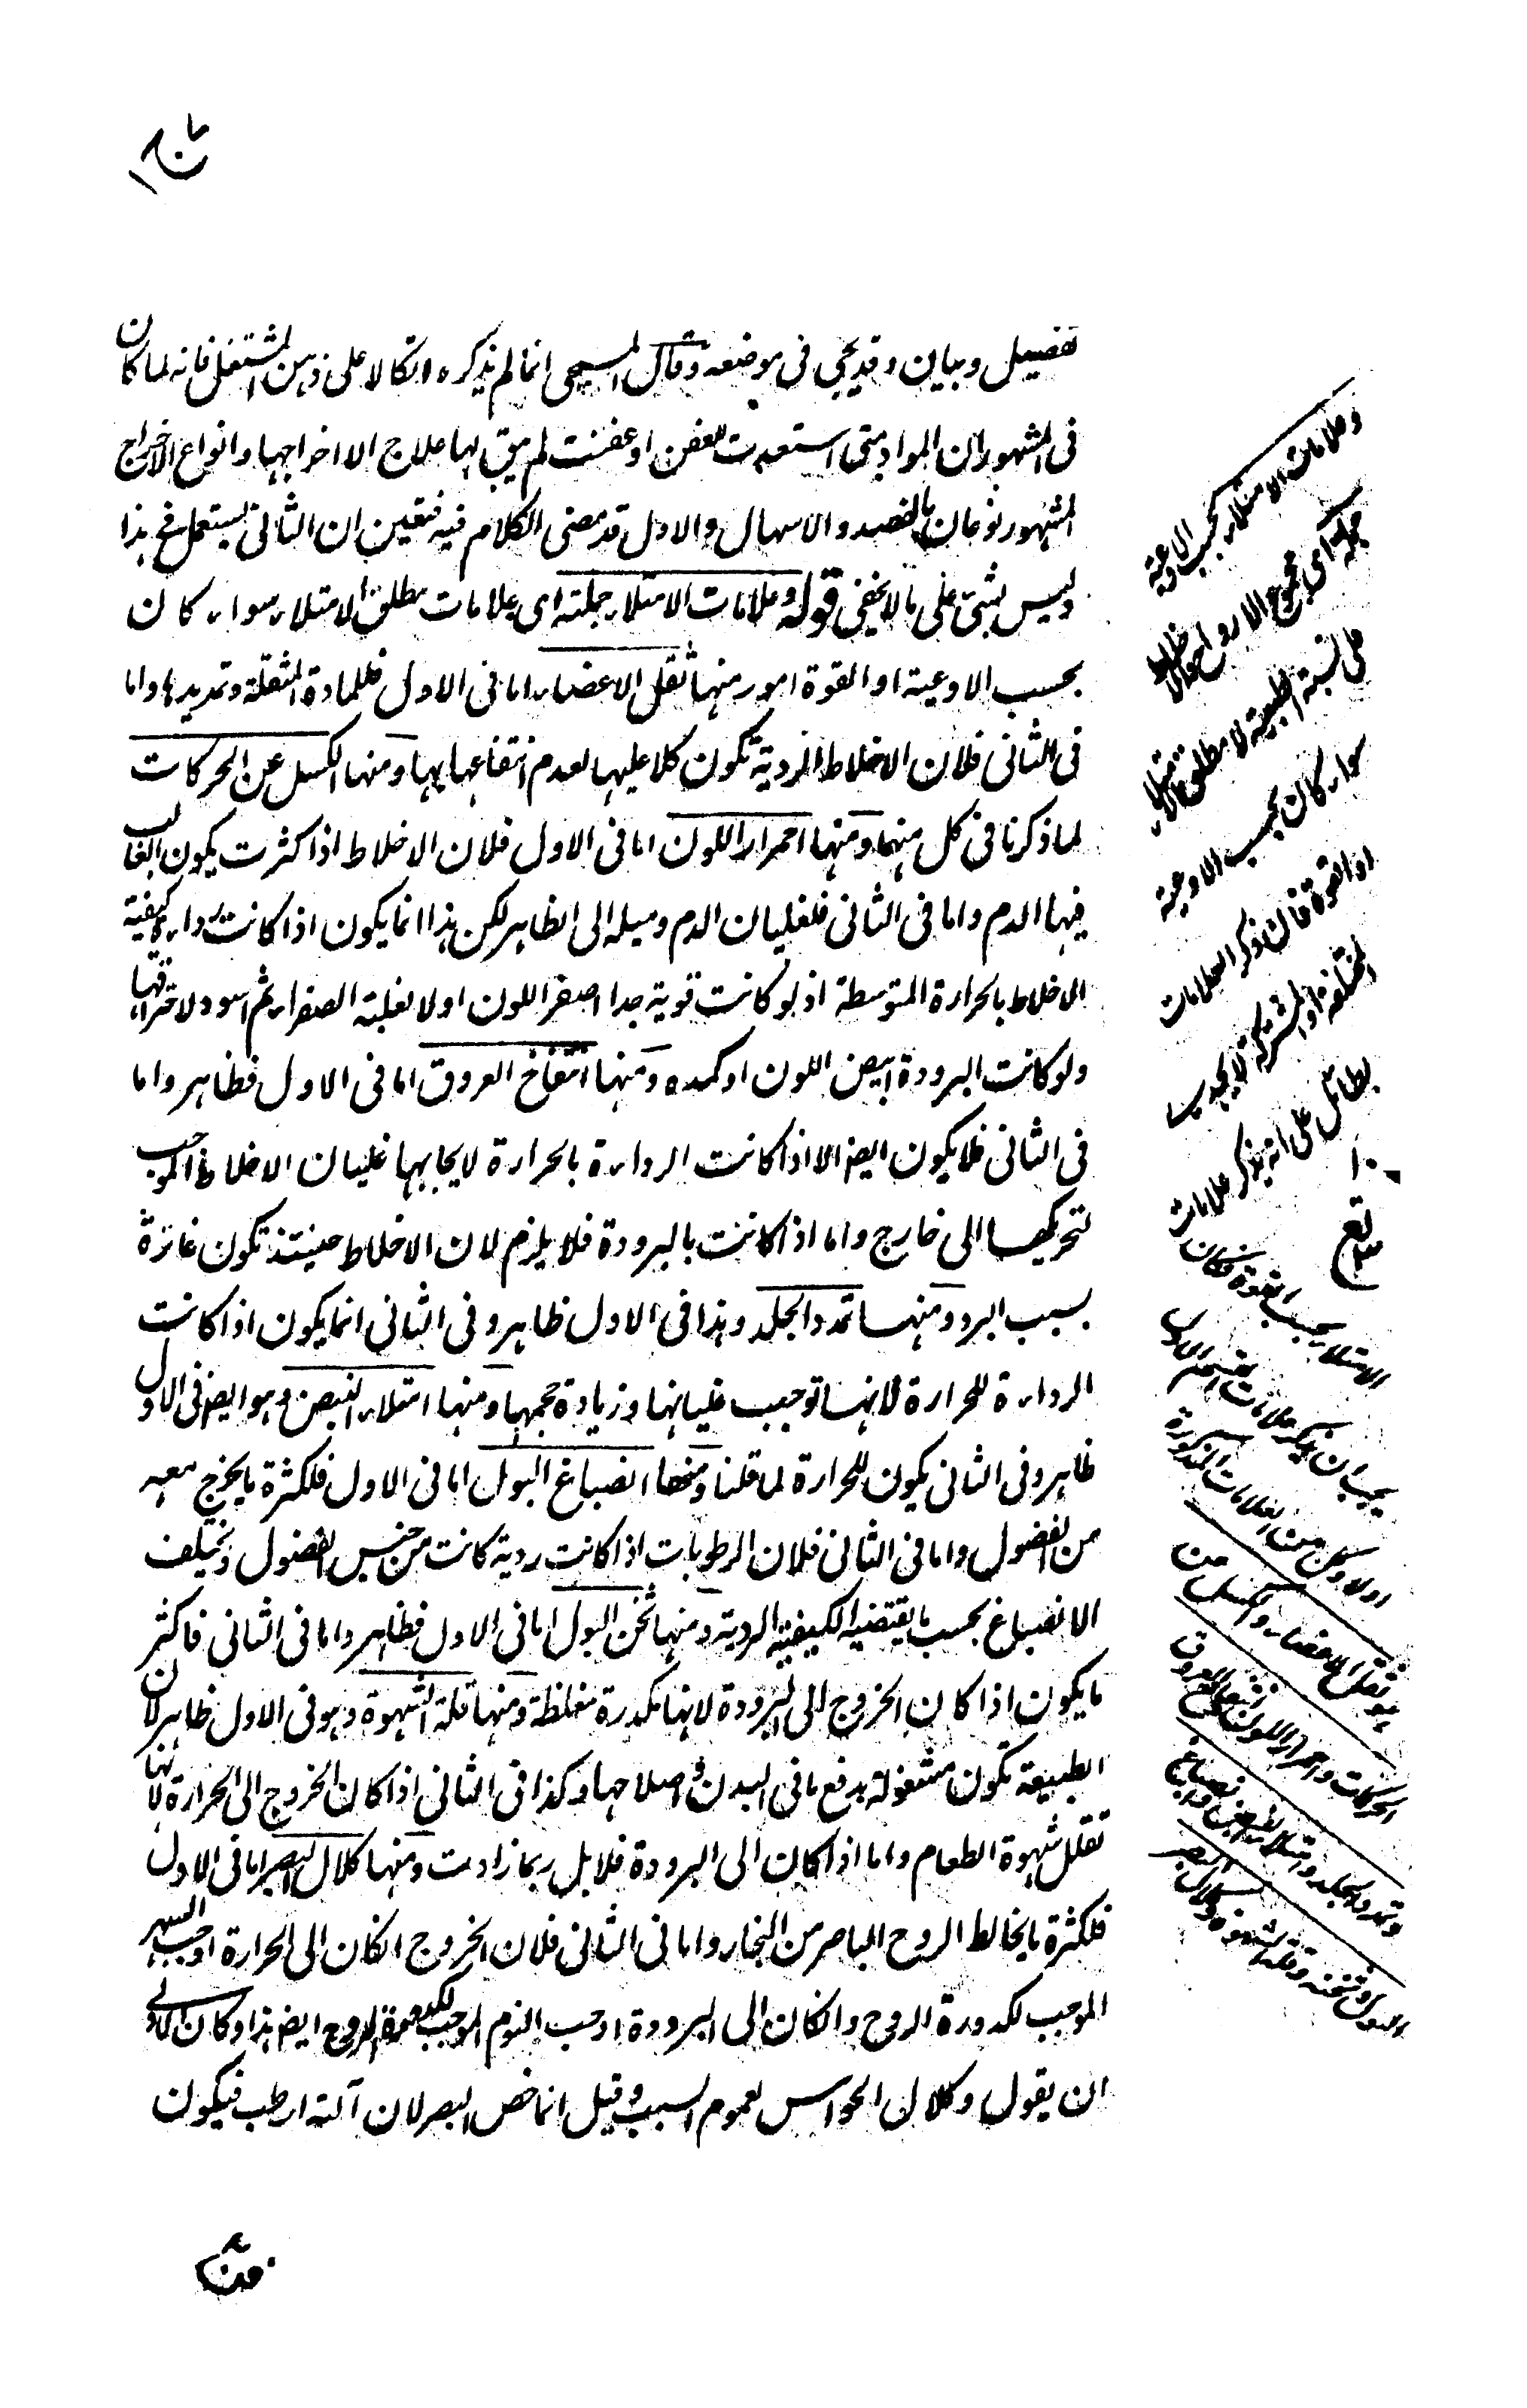 تفصیل وبیان وقد یجئ فی موضعه وقال المسیحی انما لم یذکره اتکالا علی ذهن المشتغل فانه لما کان
فی المشهور ان المواد متی استعدت للعفن او عفنت لم یبق لها علاج الا اخراجها وانواع الاخراج
المشهور نوعان الفصد والاسهال والاول قد مضی الکلام فیه فتعین ان الثانی یستعمل فی هذا
ولیس بشئ علی ما لا یخفی قوله وعلامات الامتلاء جملته ای علامات مطلق الامتلاء سواء کان
بحسب الاوعیة او القوة امور منها ثقل الاعضاء اما فی الاول فللمادة المثقلة وتمدیدها واما
فی الثانی فلان الاخلاط الردیة تکون کلا علیها لعدم انتفاعها بها ومنها الکسل عن الحرکات
لما ذکرنا فی کل منهما ومنها احمرار اللون اما فی الاول فلان الاخلاط اذا کثرت یکون الغالب
فیها الدم واما فی الثانی فلغلیان الدم ومیله الی الظاهر لکن هذا انما یکون اذا کانت رداءة کیفیة
الاخلاط بالحرارة المتوسطة اذ لو کانت قویة جدا اصفر اللون اولا لغلبة الصفراء ثم اسود لاحتراقها
ولو کانت البرودة ابیض اللون او کمده ومنها انتفاخ العروق اما فی الاول فظاهر واما
فی الثانی فلا یکون ایضا الا اذا کانت الرداءة بالحرارة لایجابها غلیان الاخلاط الموجب
لتحریکها الی خارج واما اذا کانت بالبرودة فلا یلزم لان الاخلاط حینئذ تکون غائرة
بسبب البرد ومنها تمدد الجلد وهذا فی الاول ظاهر وفی الثانی انما یکون اذا کانت
الرداءة للحرارة لانها توجب غلیانها وزیادة حجمها ومنها امتلاء النبض وهو ایضا فی الاول
ظاهر وفی الثانی یکون للحرارة لما قلنا ومنها انصباغ البول اما فی الاول فلکثرة ما یخرج معه
من الفضول واما فی الثانی فلان الرطوبات اذا کانت ردیة کانت من جنس الفضول ویختلف
الانصباغ بحسب ما یقتضیه الکیفیة الردیة ومنها ثخن البول اما فی الاول فظاهر واما فی الثانی فاکثر
ما یکون اذا کان الخروج الی البرودة لانها مکدرة مغلظة ومنها قلة الشهوة وهو فی الاول ظاهر لان
الطبیعة تکون مشغولة بدفع ما فی البدن واصلاحها وکذا فی الثانی اذا کان الخروج الی الحرارة لانها
تقلل شهوة الطعام واما اذا کان الی البرودة فلا بل ربما زادت ومنها کلال البصر اما فی الاول
فلکثرة ما یخالط الروح الباصر من البخار واما فی الثانی فلان الخروج ان کان الی الحرارة اوجب السهر
الموجب لکدورة الروح وان کان الی البرودة اوجب النوم الموجب الروح ایضا هذا وکان الاولی
ان یقول وکلال الحواس لعموم السبب وقیل انما خص البصر لان آلته ارطب فیکون
وعلامات الامتلاء بحسب الاوعیة
جملة ای مجموع الارواح والاخلاط
سواء کان بحسب الاوعیة
او القوة فان ذکر العلامات
المختلفة او المشترکة لا یجدی
بطائل علی انه یذکر علامات
الامتلاء بحسب القوة فکان
یجب ان یذکر علامات القسم الاول
اولا ولکن من العلامات المذکورة
هو ثقل الاعضاء والکسل عن
الحرکات واحمرار اللون وانتفاخ العروق
وتمدد الجلد وامتلاء النبض وانصباغ
البول وثخنه وقلة الشهوة وکلال البصر